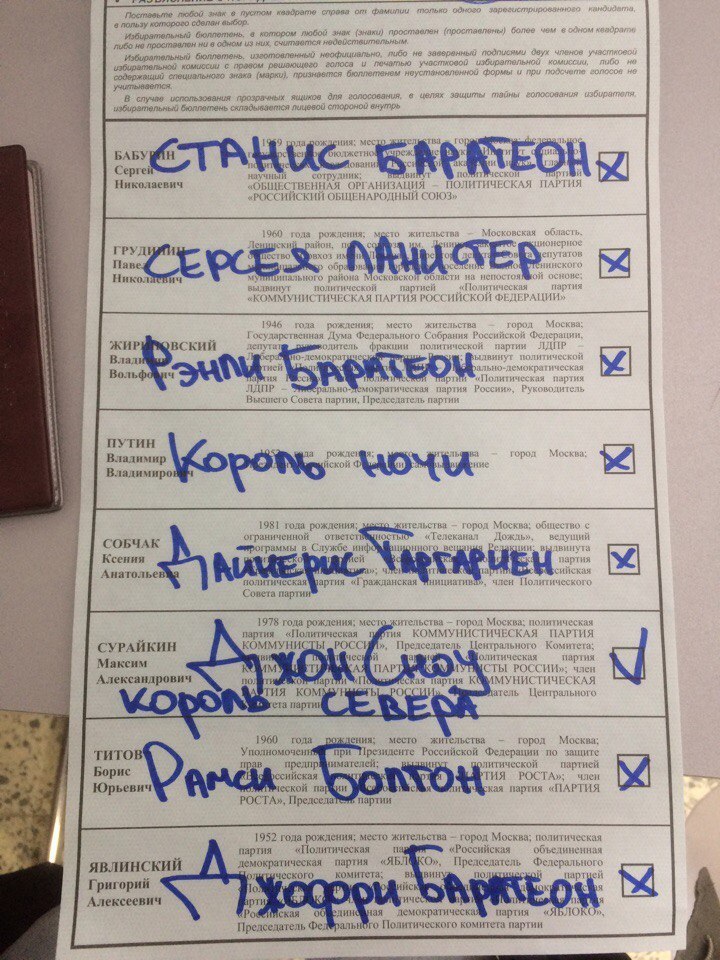 Поставьте любой знак в пустом квадрате справа от фамилии только одного зарегистрированного кандидата,
в пользу которого сделан выбор.
Избирательный бюллетень, в котором любой знак (знаки) проставлен (проставлены) более чем в одном квадрате
либо не проставлен ни в одном из них, считается недействительным.
Избирательный бюллетень, изготовленный неофициально, либо не заверенный подписями двух членов участковой
избирательной комиссии с правом решающего голоса и печатью участковой избирательной комиссии, либо не
содержащий специального знака (марки), признается бюллетенем неустановленной формы и при подсчете голосов не
учитывается.
В случае использования прозрачных ящиков для голосования, в целях защиты тайны голосования избирателя,
избирательный бюллетень складывается лицевой стороной внутрь
БАБУРИН
Сергей
Николаевич
СТАНИС БАРАТЕОН
года рождения; место
научный сотрудник; выдвинут политической партией
«ОБЩЕСТВЕННАЯ ОРГАНИЗАЦИЯ – ПОЛИТИЧЕСКАЯ ПАРТИЯ
«РОССИЙСКИЙ ОБЩЕНАРОДНЫЙ СОЮЗ»
ГРУДИНИН
Павел
Николаевич
СЕРСЕЯ ЛАНИСТЕР
1960 года рождения; место жительства – Московская область,
Ленинский район,
муниципального района Московской области на непостоянной основе;
выдвинут политической партией «Политическая партия
«КОММУНИСТИЧЕСКАЯ ПАРТИЯ РОССИЙСКОЙ ФЕДЕРАЦИИ»
ЖИРИНОВСКИЙ
Владимир
Вольфович
РЭНЛИ БАРАТЕОН
1946 года рождения; место жительства – город Москва;
Государственная Дума Федерального Собрания Российской Федерации,
депутат, руководитель фракции политической партии ЛДПР –
ЛДПР – Либерально-демократическая партия России», Руководитель
Высшего Совета партии, Председатель партии
ПУТИН
Владимир
Владимирович
Король ночи
1952 года рождения; место жительства – город Москва;
СОБЧАК
Ксения
Анатольевна
ДАЙНЕРИС ТАРГАРИЕН
1981 года рождения; место жительства – город Москва; общество с
ограниченной ответственностью «Телеканал Дождь», ведущий
программы в Службе информационного вещания Редакции; выдвинута
политическая партия «Гражданская инициатива», член Политического
Совета партии
СУРАЙКИН
Максим
Александрович
ДЖОН СНОУ
КОРОЛЬ СЕВЕРА
1978 года рождения; место жительства – город Москва; политическая
партия «Политическая партия КОММУНИСТИЧЕСКАЯ ПАРТИЯ
КОММУНИСТЫ РОССИИ», Председатель Центрального Комитета;
ТИТОВ
Борис
Юрьевич
РАМСИ БОЛТОН
1960 года рождения; место жительства – город Москва;
Уполномоченный при Президенте Российской Федерации по защите
прав предпринимателей; выдвинут политической партией
РОСТА», Председатель партии
ЯВЛИНСКИЙ
Григорий
Алексеевич
ДЖОФФРИ БАРАТЕОН
1952 года рождения; место жительства – город Москва; политическая
партия «Политическая партия «Российская объединенная
демократическая партия «ЯБЛОКО», Председатель Федерального
Политического комитета;
«Российская объединенная демократическая партия «ЯБЛОКО»,
Председатель Федерального Политического комитета партии